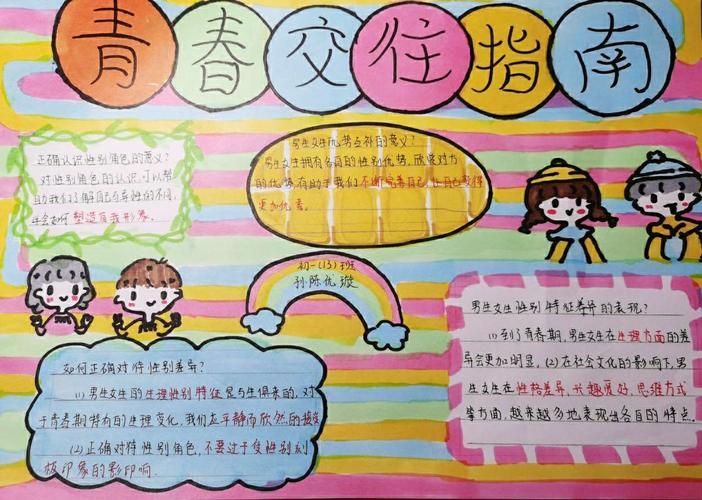 青春交往指南
正确认识性别角色的意义?
对性别角色的认识,可以帮
助我们了解自己与异性的不同,
学会如何塑造自我形象。
男生女生优势互补的意义?
男生女生拥有各自的性别优势,欣赏对方
的优势有助于我们不断完善自己,让自己变得
更加优秀。
初一(13)班
孙陈优璇
男生女生性别特征差异的表现?
(1)到了青春期,男生女生在生理方面的差
异会更加明显,(2)在社会文化的影响下,男
生女生在性格差异,兴趣爱好,思维方式
等方面,越来越多地表现出各自的特点。
如何正确对待性别差异?
(1)男生女生的生理性别特征是与生俱来的,对
于青春期特有的生理变化,我们应平静而欣然的接受
(2)正确对待性别角色,不要过于受性别刻
板印象的影响.